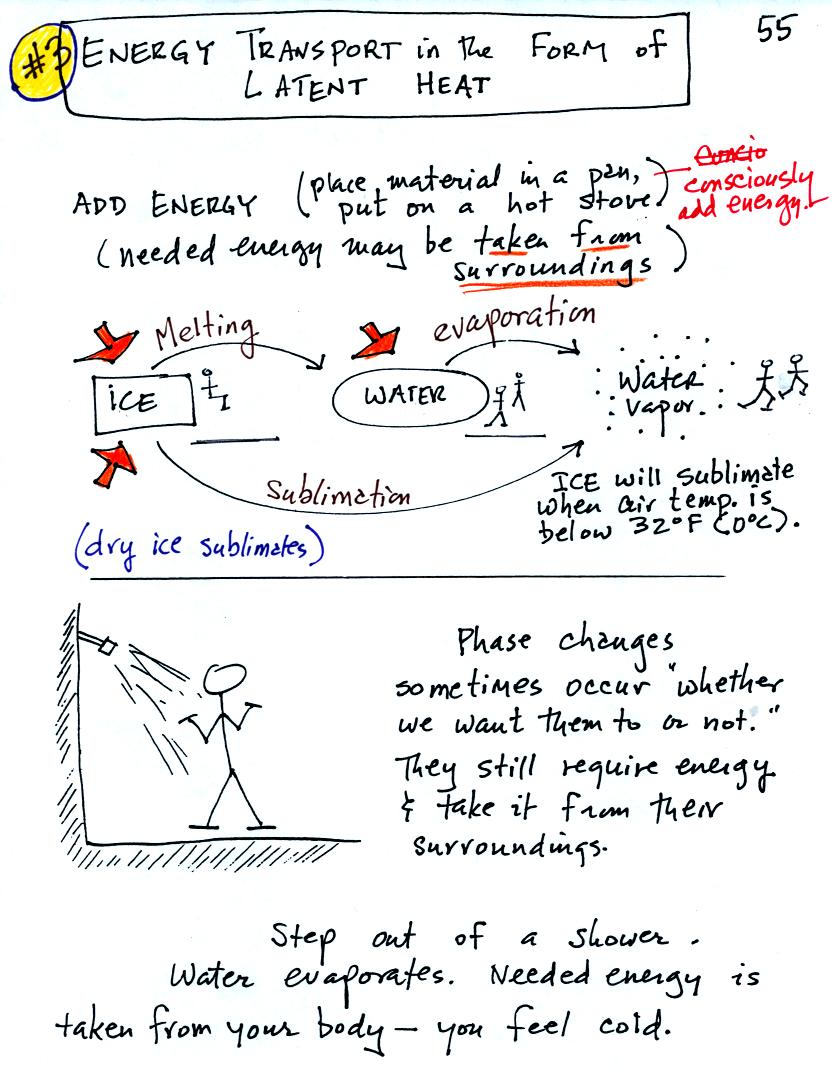 55
#3 ENERGY TRANSPORT in the FORM of
LATENT HEAT
ADD ENERGY (place material in a pan,
put on a hot stove)
consciously
add energy
(needed energy may be taken from
surroundings)
Melting
evaporation
ICE
WATER
Water
vapor
Sublimation
ICE will sublimate
when air temp. is
below 32°F (0°C).
(dry ice sublimates)
Phase changes
sometimes occur "whether
we want them to or not."
They still require energy
& take it from their
surroundings.
Step out of a shower.
Water evaporates. Needed energy is
taken from your body — you feel cold.